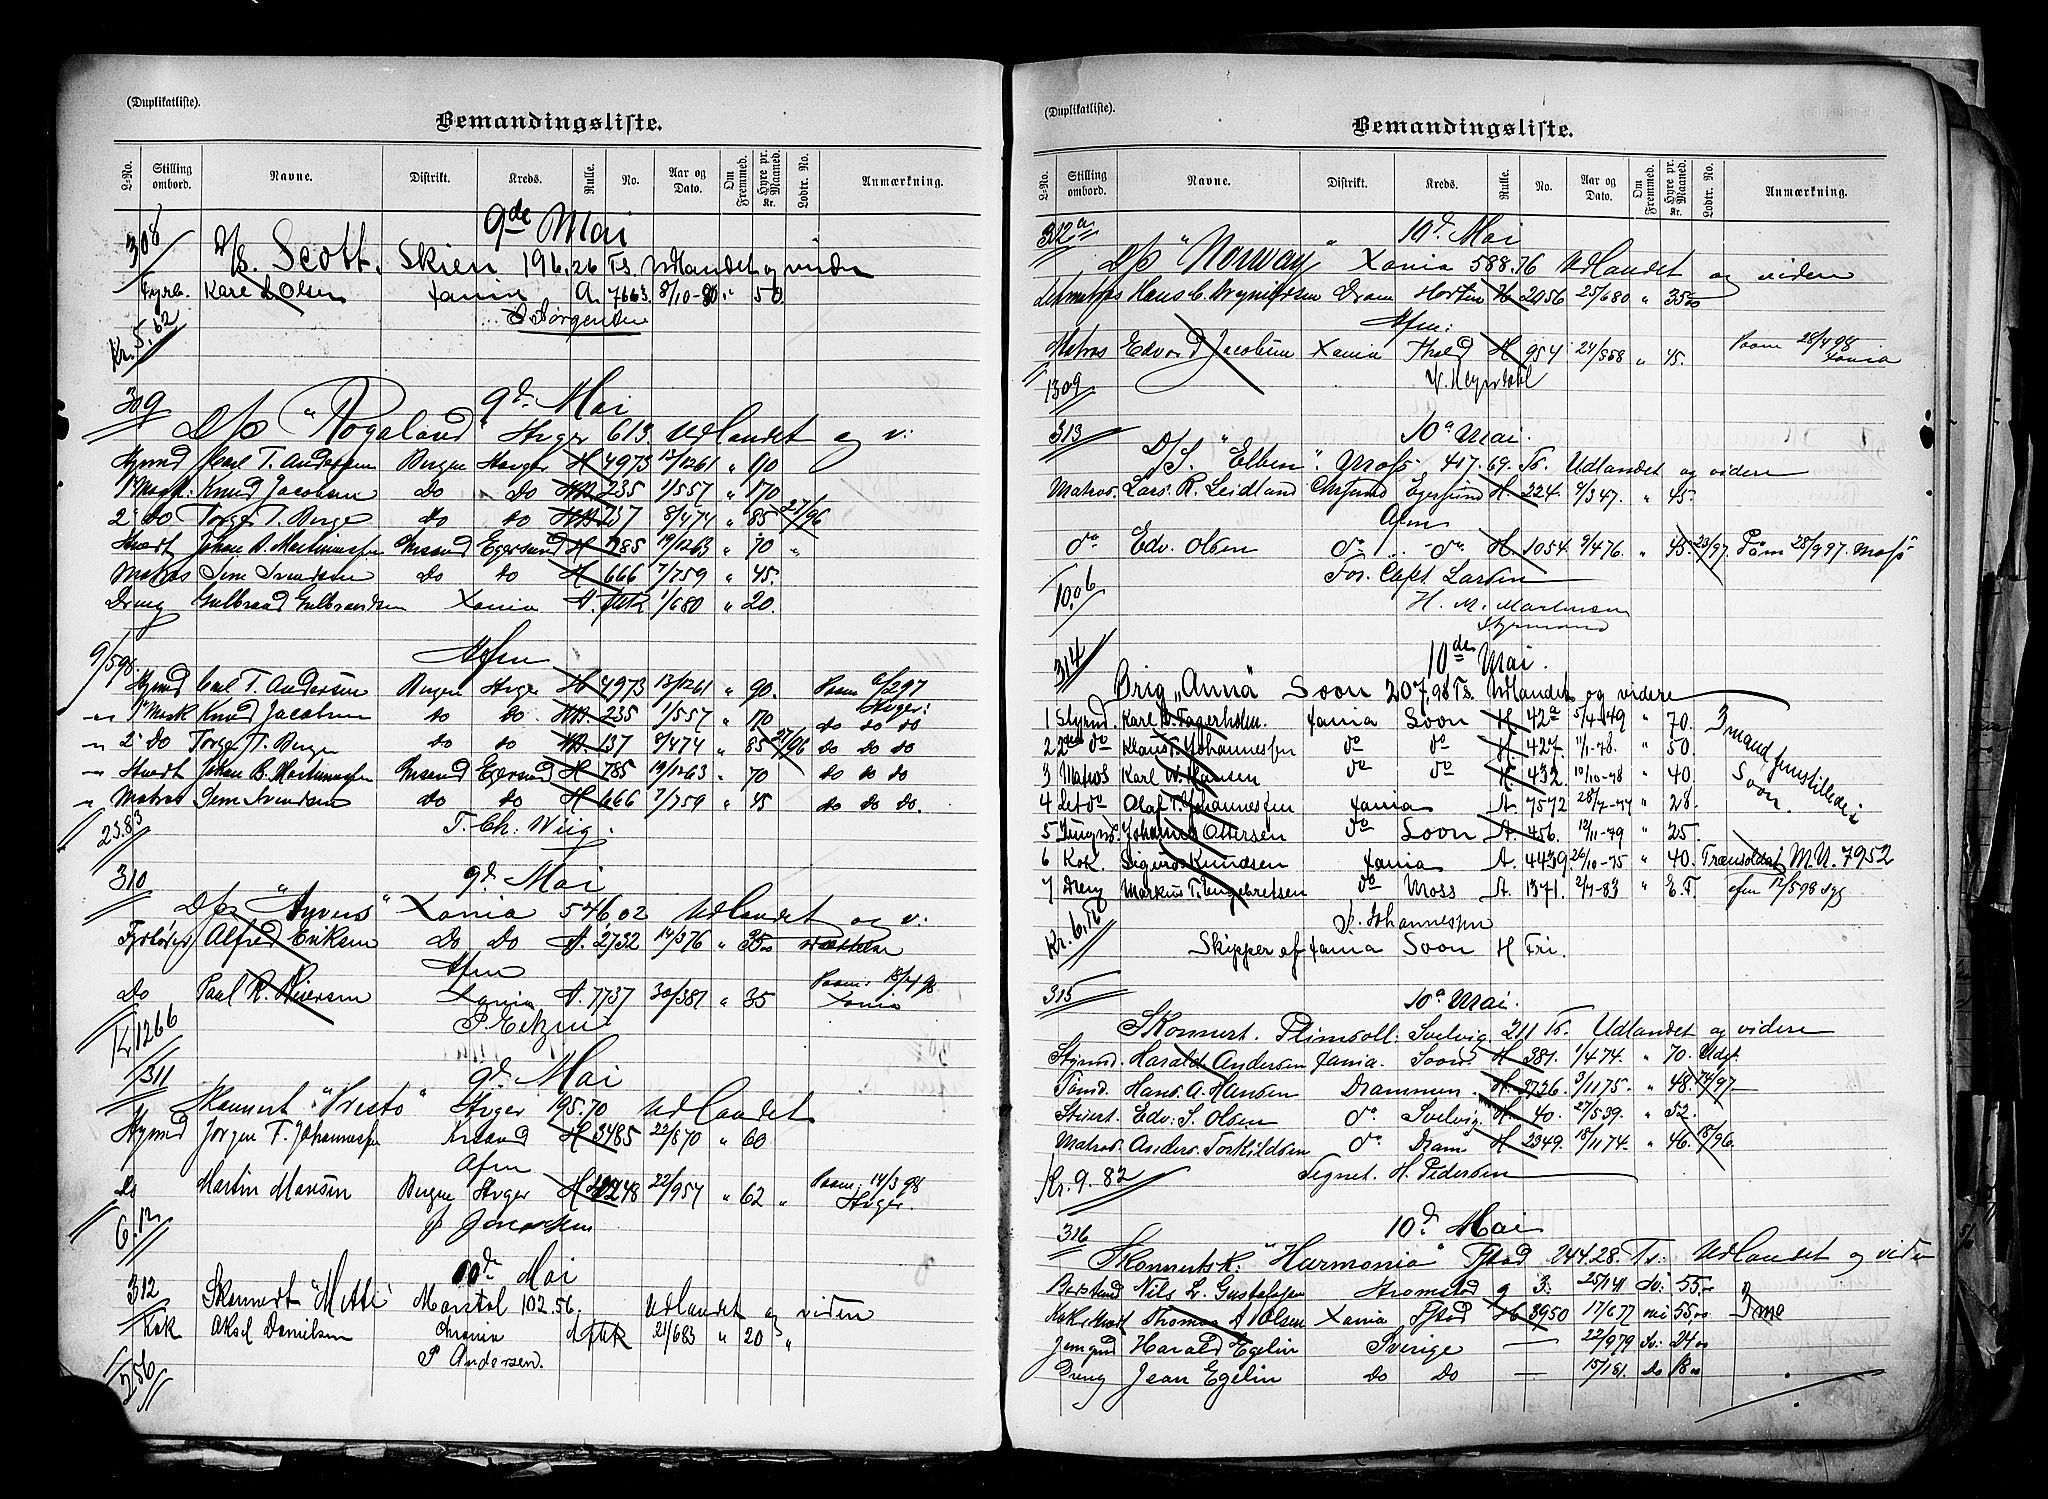 (Duplikatliste).
Bemandingsliste.
L-No. Stilling ombord. Navne. Distrikt. Kreds. Rulle. No. Aar og Dato. Om Fremmed. Hyre pr. Maaned. Kr. Lodtr. No. Anmærkning.
308 9de Mai
D/S. Scott. Skien 196.26 Ts. Udlandet og videre
Fyrb. Karl Olsen Xania A. 7663 8/10-80 " 50
Kr. 5.62
309 9d Mai
D/S "Rogaland" Stvger 613. Udlandet og v:
Stymd Karl T. Andersen Bergen Stvger H 4973 12/1261 " 90
1 Mask. Knud Jacobsen Do Do 235 1/557 " 170
2 Do Torger T. Berge do do 137 8/474 " 85 27/96
Stuert Johan B. Martinussen Chrsand Egersund H 785 19/1263 " 70 "
Matros Sem Svendsen Do do H 666 7/759 " 45.
Dreng Gulbrand Gulbrandsen Xania A. 1/680 " 20.
9/598. Afm
Stymd Carl T. Andersen Bergen Stvger H 4973 13/1261 " 90. Paam 9/297 Stvger:
1 Mask Knud Jacobsen do do 235 1/557 " 170 do do do
2 Do Torger T. Berge do do 137 8/474 " 85 27/96 do do do
Stuert Johan B. Martinussen Chrsand Egersund H 785 19/1263 " 70 do do do
Matros Sem Svendsen do do H 666 7/759 " 45 do do do.
23.83 T. Ch. Wiig.
310 9d Mai
D/S "Syvern" Xania 546.02 Udlandet og v:
Fyrbøder Alfred Eriksen Do Do A. 2732 14/376 " 35
Afm
Do Paal R. Iversen Xania A. 7737 30/381 " 35 Paam: 18/498 Xania
Kr 1266
311 9d Mai
Skonnert "Presto" Stvger 195.70 Udlandet
Stymd Jørgen F. Johannessen Krsand H 3485 22/870 " 60
Afm
Do Martin Monsen Bergen Stvger H 1248 22/954 " 62 " Paam: 14/398 Stvger.
6.12
312 10de Mai
Skonnert "Mette" Marstal 102.56. Udlandet og viden
Kok Aksel Danielsen Xrania 21/683 " 20 "
2.56 P Andersen.
(Duplikatliste).
Bemandingsliste.
L-No. Stilling ombord. Navne. Distrikt. Kreds. Rulle. No. Aar og Dato. Om Fremmed. Hyre pr. Maaned. Kr. Lodtr. No. Anmærkning.
312a 10d. Mai
D/S "Norway" Xania 588.76 Udlandet og videre
Letmatros Hans C. Brynildsen Dram Horten H 2056 25/680 " 35
Afm:
Matros Edvard Jacobsen Xania Thold H 954 24/858 " 45. Paam 28/498 Xania
1309
313 10d Mai.
D/S. "Elben". Moss. 417.69. Ts. Udlandet og videre
Matros. Lars R. Leidland Chrsand Egersund H 224. 9/347. " 45.
Afm
do Edv. Olsen do do. H. 1054. 9/476. " 45. 23/97. Paam 28/997. Moss
For. Capt. Larsen
10.06 H. M. Martinsen
Styrmand
314 10de Mai.
Brig "Anna" Soon 207,98 Ts. Udlandet og videre
1 Styrmd. Karl A. Fagerholm. Xania Soon H 42a 5/4-49 " 70.
2 2den do Klaus T. Johannessen do do H 427. 11/1-78. " 50. 3 mand frmstillede i Soon.
3 Matros Karl A. Hansen do do H 432. 10/10-78 " 40.
4 Let do Olaf T. Johannessen Xania A. 7572 28/7-77 " 28.
5 Jungm. Johannes Ottersen do Soon A. 456. 12/11-79 " 25.
6 Kok. Sigurd Knudsen Xania A. 4439. 26/10-75 " 40. Trænsoldat M.N. 7952
7 Dreng Markus T. Engebretsen do Moss A. 1371. 2/7-83 " E.T. afm 12/598 syg
Kr. 6. Johannessen
Skipper af Xania Soon H Fri.
315 10d Mai.
Skonnert. Plimsoll. Svelvig. 211 Ts. Udlandet og videre
Stymd. Harald Andersen Xania. Soon H 381. 1/474. " 70. Udgt.
Tømd. Hans A. Hansen Drammen. H. 2726. 3/1175. " 48. /97
Stuert. Edv. S. Olsen do Svelvig H 40. 27/539. " 52.
Matros. Anders. Torkildsen do Dram H 2349. 18/1174. " 46. 18/96.
Kr. 9.82 Tegnet. H. Pedersen
316 10d. Mai
Skonnertsk. "Harmonia" Fstad 244.28. Ts: Udlandet og viden
Bestmd Nils L. Gustafsen Strømstad g 3. 25/141 Sv. 55.
Kok & Matr Thomas A Olsen Xania Fstad H 3950 17/677 55.
Jungmd Harald Egelin Sverige — 22/979 Sv: 24
Dreng Jean Egelin do Do — 15/181. do 18